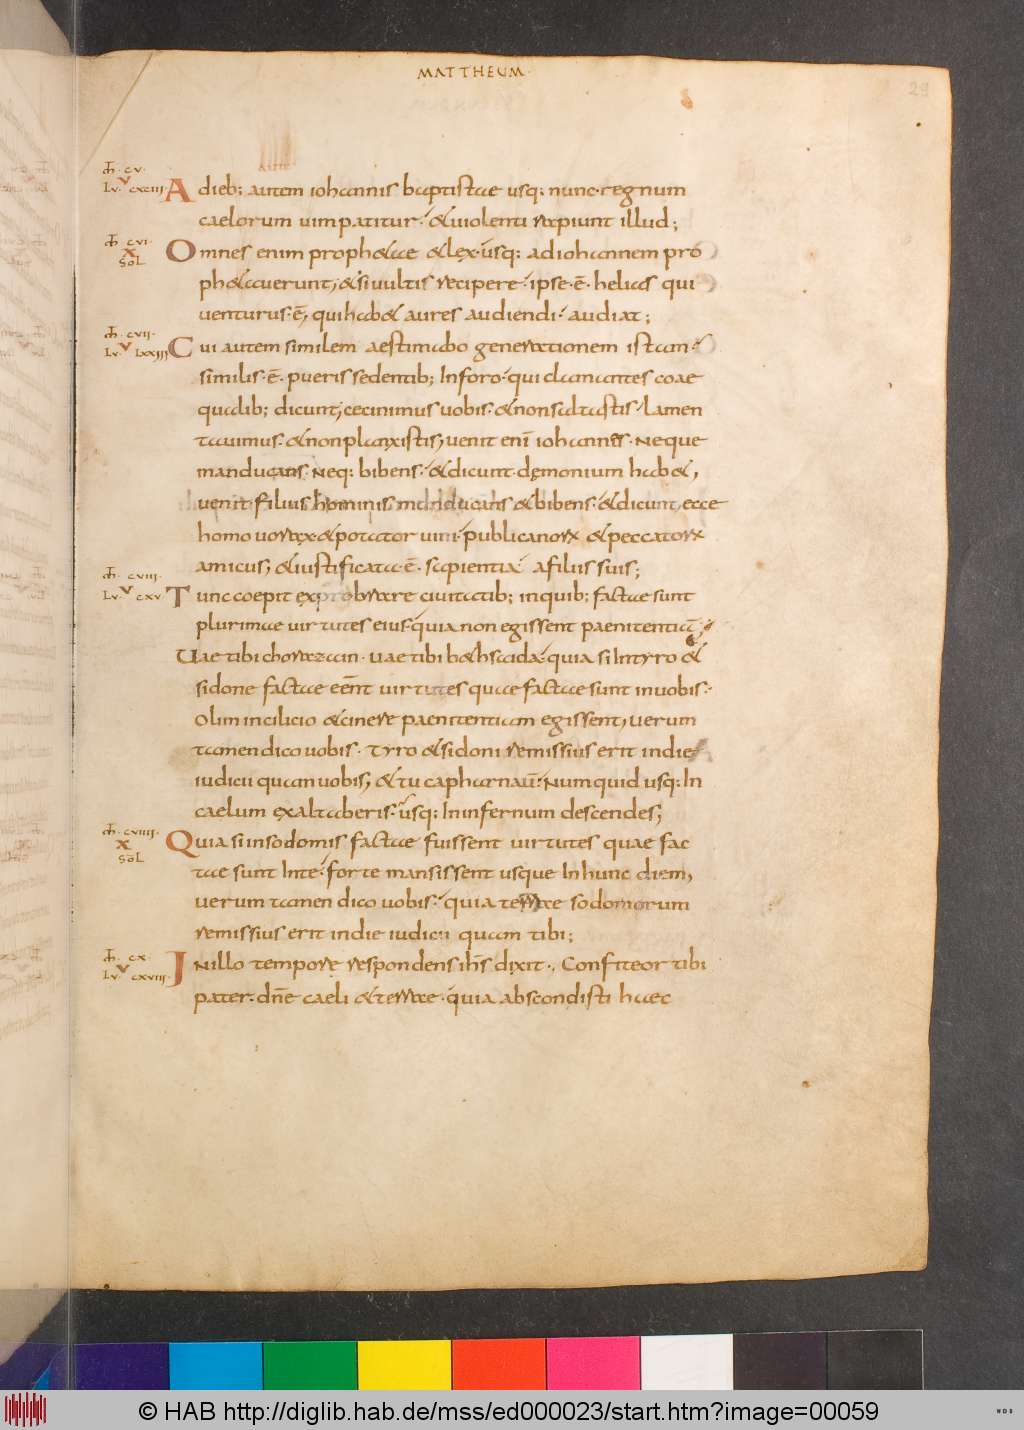 MATTHEUM·
29
m̄h · cv·
Lv· v cxciii·
A dieb; autem iohannis baptistae usq: nunc· regnum
caelorum uim patitur· & uiolenti rapiunt illud;
m̄h cvi
x
Sol
Omnes enim proph&ae & lex· usq: ad iohannem pro
ph&auerunt, & si uultis recipere· ipse· ē· helias qui
uenturus· ē, qui hab& aures audiendi· audiat;
m̄h · cvii·
Lv· v lxxiii
Cui autem similem aestimabo generationem istam·
similis· ē· pueris sedentib; In foro· qui clamantes coae
qualib; dicunt, cecinimus uobis· & non saltastis· lamen
tauimus· & non planxistis, uenit enī iohannes· Neque
manducans· Neq: bibens· & dicunt· dęmonium hab&,
uenit filius hominis manducans & bibens· & dicunt, ecce
homo uorax· & potator uini· publicanorꝝ & peccatorꝝ
amicus, & iustificata· ē· sapientia a filiis suis;
m̄h · cviii·
Lv· v cxv·
Tunc coepit exprobrare ciuitatib; in quib; factae sunt
plurimae uirtutes eius· quia non egissent paenitentiā,
Uae tibi chorazain· uae tibi b&hsaida· quia si In tyro &
sidone factae eēnt uirtutes quae factae sunt in uobis·
Olim in cilicio & cinere paenitentiam egissent, uerum
tamen dico uobis· Tyro & sidoni remissius erit in die
iudicii quam uobis, & tu capharnaū· Numquid usq: In
caelum exaltaberis· usq: In infernum descendes,
m̄h · cviiii·
x
Sol
Quia si in sodomis factae fuissent uirtutes quae fac
tae sunt In te· forte mansissent usque In hunc diem,
uerum tamen dico uobis· quia terrae sodomorum
remissius erit in die iudicii quam tibi;
m̄h · cx·
Lv· v cxviii·
INillo tempore respondens ih̄s dixit· Confiteor tibi
pater· dn̄e caeli & terrae· quia abscondisti haec
© HAB http://diglib.hab.de/mss/ed000023/start.htm?image=00059
WDB